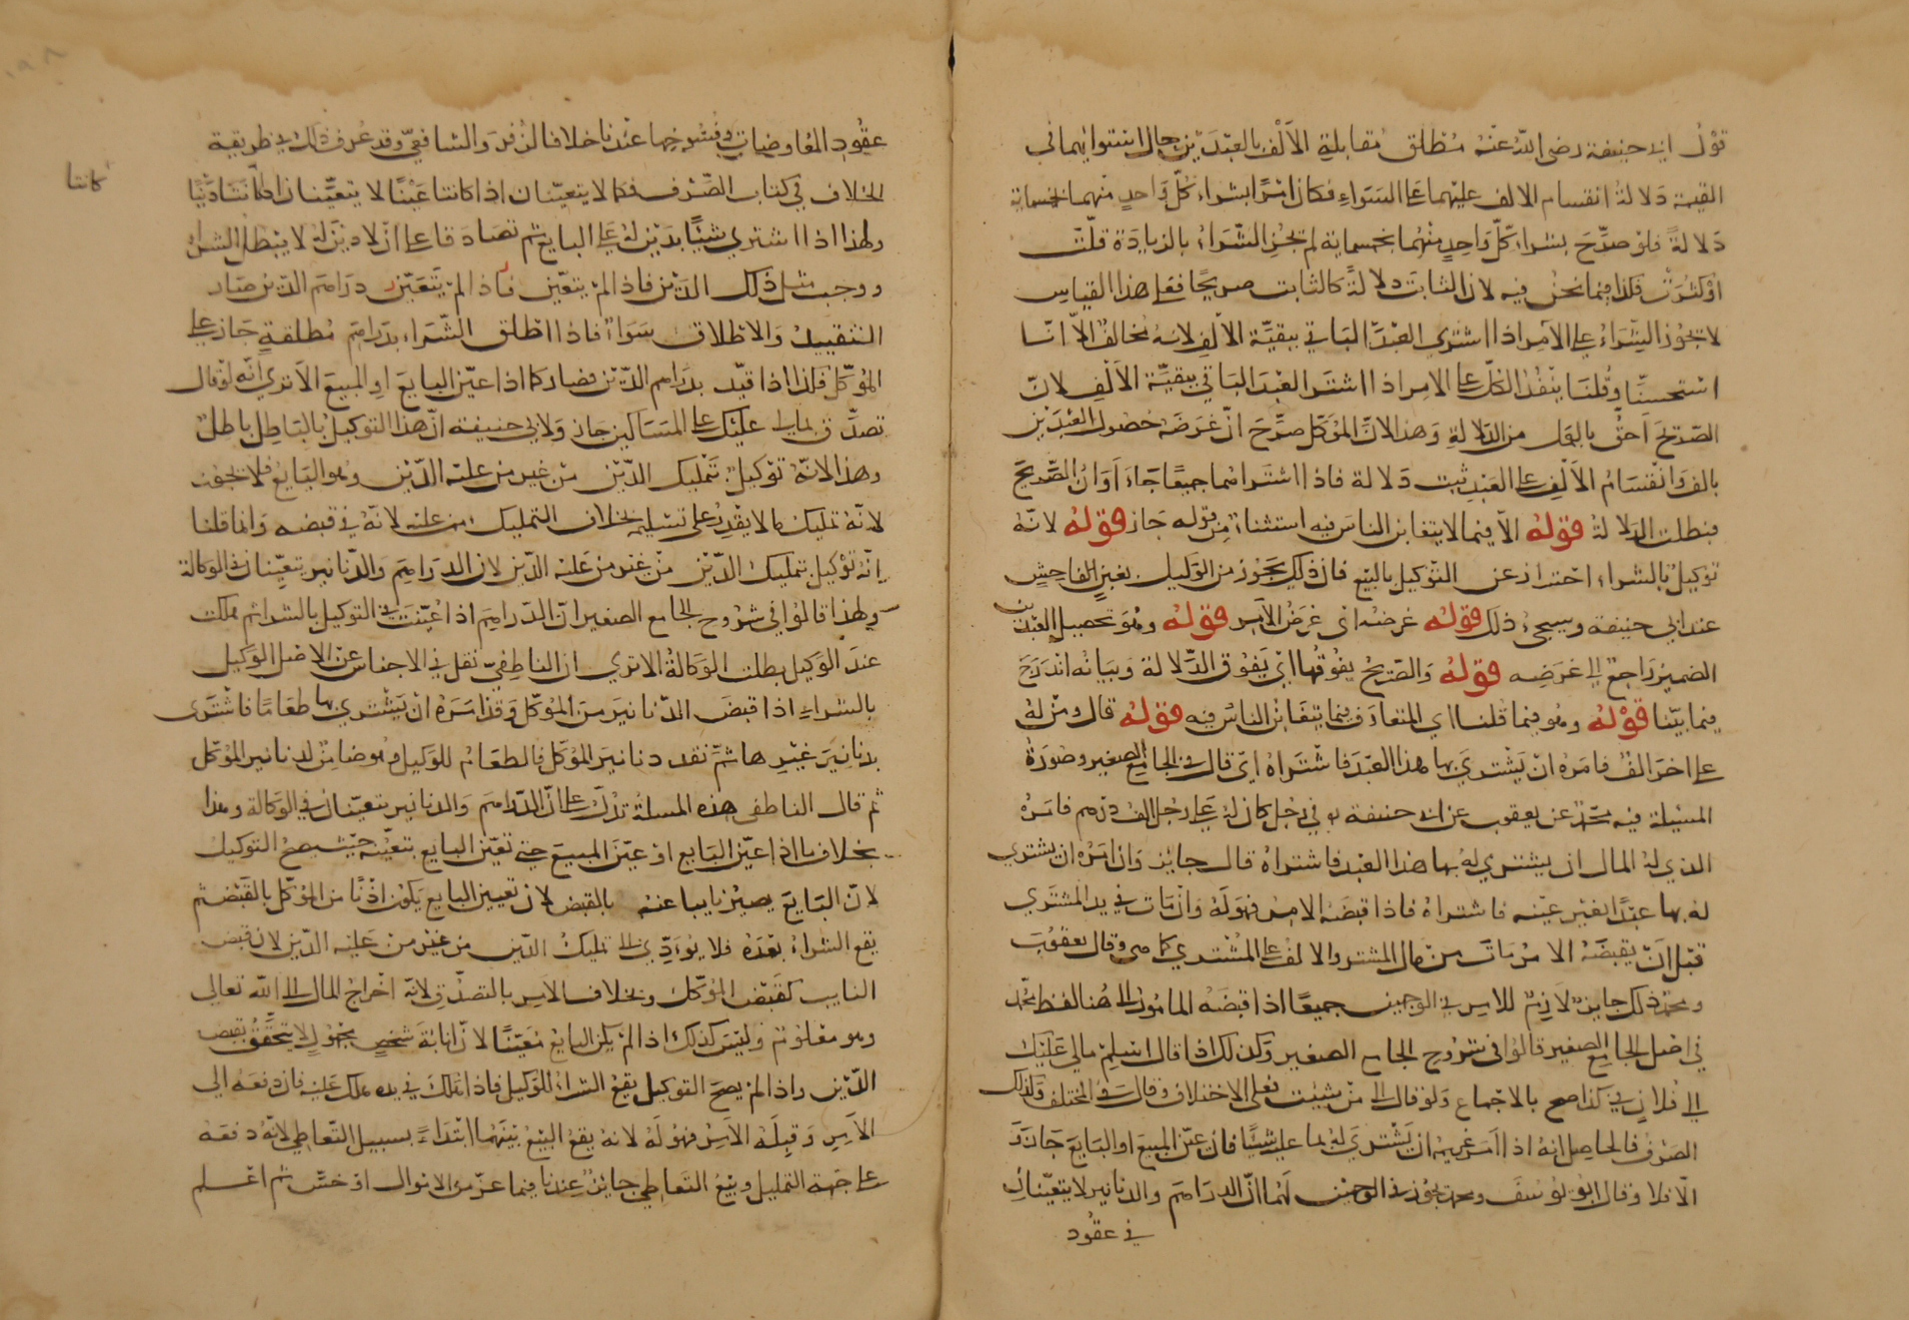 قول ابي حنيفة رضي الله عنه مطلق مقابلة الالف بالعبدين حال استوائهما في
القيمة دلالة انقسام الالف عليهما على السواء فكان امرا بشراء كل واحد منهما بخمسماية
دلالة فلو صرح بشراء كل واحد منهما بخمسماية لم يجز الشراء بالزيادة قلت
او كثرت فكذا فيما نحن فيه لان الثابت دلالة كالثابت صريحا فعلى هذا القياس
لا يجوز الشراء على الآمر اذا اشترى العبد الباقي ببقية الالف لانه مخالف الا انا
استحسنا وقلنا ينفذ الكل على الامر اذا اشترا العبد الباقي ببقية الالف لان
الصريح احق بالعمل من الدلالة وهذا لان الموكل صرح ان غرضه حصول العبدين
بالف وانقسام الالف على العبد ثبت دلالة فاذا اشتراهما جميعا جاء اوان الصريح
فبطلت الدلالة قوله الا فيما لا يتغابن الناس فيه استثناء من قوله جاز قوله لانه
توكيل بالشراء احتراز عن التوكيل بالبيع فان ذلك يجوز من الوكيل بغبن الفاحش
عند ابي حنيفة وسيجيء ذلك قوله غرضه اي غرض الآمر قوله وهو تحصيل العبدين
الضمير راجع الى غرضه قوله والصريح يفوقها اي يفوق الدلالة وبيانه اندرج
فيما بينا قوله وهو فيما قلنا اي المتعارف فيما يتغابن الناس فيه قوله قال ومن له
على اخر الف فامره ان يشتري بها هذا العبد فاشتراه اي قال في الجامع الصغير وصورة
المسئلة فيه محمد عن يعقوب عن ابي حنيفة في رجل كان له على رجل الف درهم فامره
الذي له المال ان يشتري له بها هذا العبد فاشتراه قال جايز وان امره ان يشتري
له بها عبدا بغير عينه فاشتراه فاذا قبضه الامر فهو له وان مات في يد المشتري
قبل ان يقبضه الامر مات من مال المشتر والالف على المشتري كما هي وقال يعقوب
ومحمد ذلك جايز لازم للامر في الوجهين جميعا اذا قبضه المامور الى هنا لفظ محمد
في اصل الجامع الصغير قالوا في شروح الجامع الصغير وكذلك اذا قال اسلم مالي عليك
الى فلان في كذا صح بالاجماع ولو قال الى من شئت فعلى الاختلاف وقال في المختلف وكذلك
الصرف فالحاصل انه اذا امر غريمه ان يشتري له بما عليه شيئا فان عين المبيع او البايع جاز
الا فلا وقال ابو يوسف ومحمد يجوز في الوجهين لهما ان الدراهم والدنانير لا يتعينان
في عقود
عقود المعاوضات وفسوخها عندنا خلافا لزفر والشافعي وقد عرف ذلك في طريقية
الخلاف في كتاب الصرف فكما لا يتعينان اذا كانتا عينا لا يتعينان اذا كانتا دينا
كانتا
ولهذا اذا اشترى شيئا بدين له على البايع ثم تصادقا على ان لا دين له لا يبطل الشراء
ووجب مثل ذلك الدين فاذا لم يتعين فاذا لم يتعين دراهم الدين صار
التقييد والاطلاق سواء فاذا اطلق الشراء بدراهم مطلقة جاز على
الموكل فكذا اذا قيد بدراهم الدين فصار كما اذا عين البايع او المبيع الا ترى انه لو قال
تصدق بمالي عليك على المساكين جاز ولابي حنيفة ان هذا التوكيل بالباطل باطل
وهذا لانه توكيل بتمليك الدين من غير من عليه الدين وهو البايع فلا يجوز
لانه تمليك ما لا يقدر على تسليمه بخلاف التمليك من عليه لانه في قبضه وانما قلنا
انه توكيل بتمليك الدين من غير من عليه الدين لان الدراهم والدنانير يتعينان في الوكالة
ولهذا قالوا في شروح الجامع الصغير ان الدراهم اذا عينت في التوكيل بالشراء ثم هلكت
عند الوكيل بطلت الوكالة الا ترى ان الناطفي نقل في الاجناس عن الاصل الوكيل
بالشراء اذا قبض الدنانير من الموكل وقد امره ان يشتري بها طعاما فاشترى
بدنانير غيرها ثم نقد دنانير الموكل فالطعام للوكيل وهو ضامن لدنانير الموكل
ثم قال الناطفي هذه المسلة تدل على ان الدراهم والدنانير يتعينان في الوكالة وهذا
بخلاف ما اذا عين البايع او عين المبيع حتى تعين البايع بتعينه حيث يصح التوكيل
لان البايع يصير نايبا عنه بالقبض لان تعيين البايع يكون اذنا من الموكل بالقبض ثم
يقع الشراء بعده فلا يؤدي الى تمليك الدين من غير من عليه الدين لان قبض
النايب كقبض الموكل وبخلاف الامر بالتصدق لانه اخراج المال الى الله تعالى
وهو معلوم وليس كذلك اذا لم يكن البايع معينا لان انابة شخص مجهول لا يتحقق بقبض
الدين واذا لم يصح التوكيل يقع الشراء للوكيل فاذا هلك في يده هلك عليه فان دفعه الى
الآمر وقبله الآمر فهو له لانه يقع البيع بينهما ابتداء بسبيل التعاطي لانه دفعه
على جهة التمليك وبيع التعاطي جايز عندنا فيما عز من الاموال او خس ثم اعلم